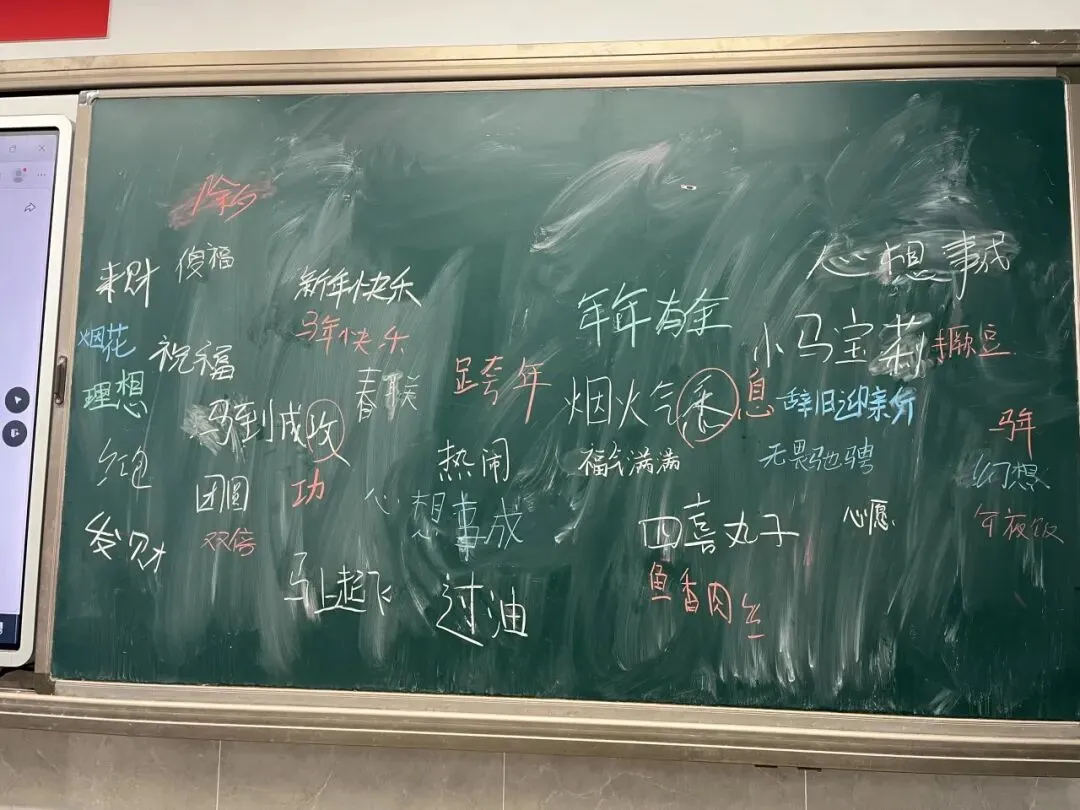 除夕
来财
傻福
新年快乐
心想事成
烟花
祝福
马年快乐
年年有余
小马宝莉
撅豆
理想
马到成收
功
春联
跨年
烟火气悉
息
辞旧迎亲分
马年
红包
团圆
热闹
福气满满
无畏驰骋
幻想
发财
双倍
心想事成
四喜丸子
心愿
年夜饭
马上起飞
过油
鱼香肉丝